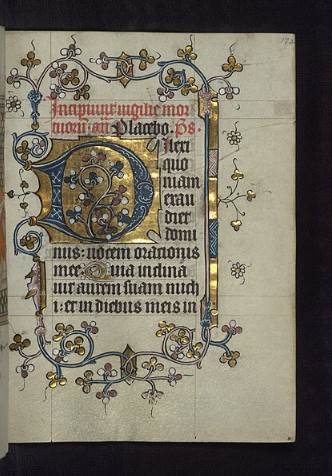 Incipiunt vigilie mor
tuorum. añ Placebo. Ps.
Dilexi
quo
niam
exau
diet
domi
nus: vocem orationis
mee. Quia inclina
vit aurem suam mich
i: et in diebus meis in